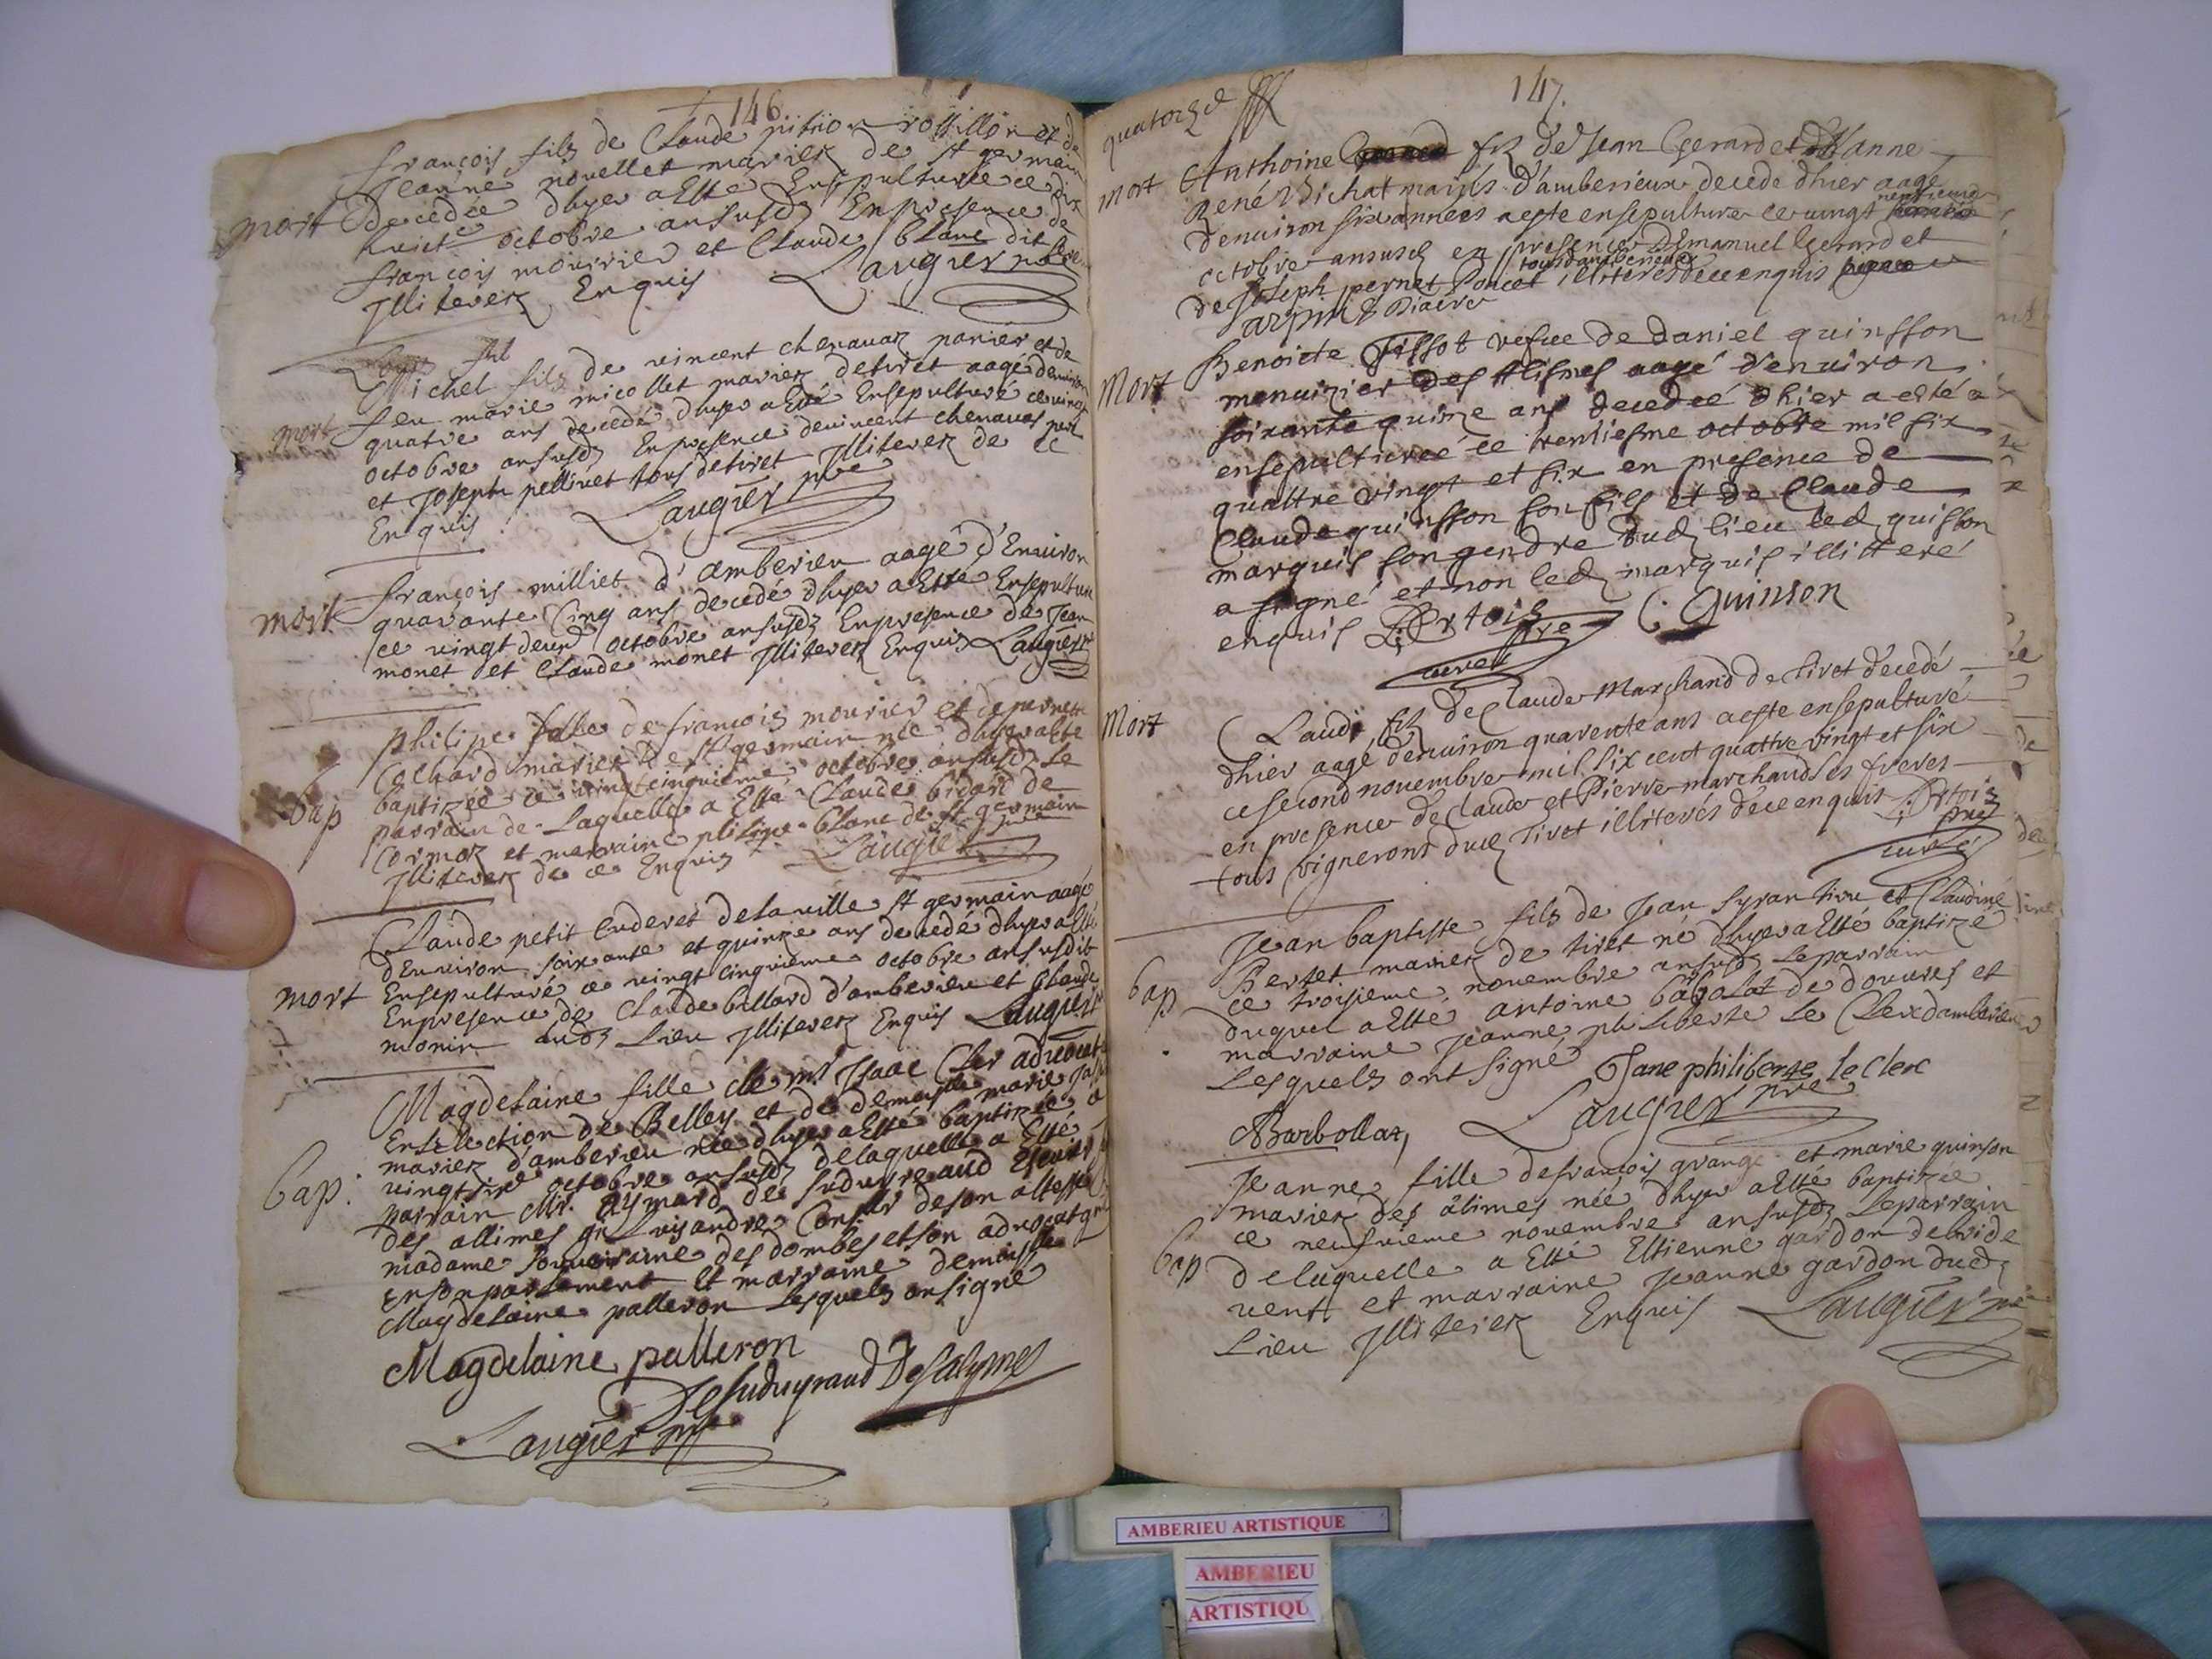 146
françois fils de Claude pition rossillon et de
Jeanne nouellet mariez de st germain
mort decedée dhyer a Esté Ensepulturée ce dix
huict octobre ansusdz En presence de
françois mourrier et Claude blanc dit
Illiterez Enquis Laugier pbre
Michel fils de vincent chenauaz panier et de
feu marie micollet mariez de tiret aagé denuiron
mort quatre ans decedé dhyer a Esté Ensepulturé ce vingt
octobre ansusdz En presence de vincent chenauaz
et Joseph pellivet tous de tiret Illiterez de ce
Enquis Laugier pre
françois milliet d'amberieu aagé d'Enuiron
mort quarante Cinq ans decedé dhyer a Esté Ensepulturé
ce vingt deux octobre ansusdz En presence de Jean
monet et Claude monet Illiterez Enquis Laugier
philipe fille de françois mourier et de pernette
Cochard mariez de st germain née dhyer a Esté
bap baptizée ce vingt cinquieme octobre ansusdz Le
parrain de Laquelle a Esté Claude bidard de
Cormoz et marraine philipe blanc de st germain
Illiterez de ce Enquis Laugier pre
Claude petit Cuderet de la ville st germain aagé
d'Enuiron soixante et quinze ans decedé dhyer a Esté
mort Ensepulturé ce vingt cinquieme octobre ansusdit
En presence de Claude billard d'amberieu et Claude
monin dudz Lieu Illiterez Enquis Laugier
Magdelaine fille de mr Isaac Cler aduocat
En Eslection de Belley et de demoyselle marie
mariez d'amberieu née dhyer a Esté baptizée ce
bap: vingt six octobre ansusdz de laquelle a Esté
parrain Mr. Aymard de suduyraud Escuier
des allimes Conseiller de son altesse
madame souueraine des dombes et son aduocat
En son parlement Et marraine demoiselle
Magdelaine palleron Lesquels on signé
Magdelaine palleron
De Suduyraud Desalymes
Laugier pre
147
quatorze
Anthoine fz de Jean Gerard et d'anne
mort René Bichat mariés d'amberieux decede dhier aagé
denuiron six années a este ensepulturé ce vingt neufieme
octobre ansusd en presence d'Emanuel Gerard et
tous d'amberieux
de Joseph pernet Poncet illiterés de ce enquis
Benoicte Tissot vefue de Daniel quinsson
Mort menuizier des Alismes aagé d'enuiron
soixante quinze ans decedée dhier a esté
ensepulturée ce trentiesme octobre mil six
quattre vingt et six en presence de
Claude quinsson son fils et de Claude
marquis son gendre dud lieu led quisson
a signé et non led marquis illitteré
enquis Bertois pre C. Quinson
curé
Mort Claude fz de Claude Marchand de Tiret decedé
dhier aagé denuiron quarente ans a este ensepulturé
ce second nouembre mil six cent quattre vingt et six
en presence de Claude et Pierre marchand ses freres
tous vignerons dud Tiret illiterés de ce enquis Bertois
pre
curé
Jean baptiste fils de Jean Syran tiou et Claudine
Bertet mariez de tiret né dhyer a Esté baptizé
bap ce troisieme nouembre ansusdz Le parrain
duquel a Esté antoine babolat de douures et
marraine Jeanne philiberte Le Clerc damberieu
Lesquels ont signé Jane philiberte le Clerc
Barbollat Laugier pre
Jeanne fille de françois grange et marie quinson
mariez des alimes née dhyer a Esté baptizée
ce neufuieme nouembre ansusdz Le parrain
bap de laquelle a Esté Estienne gardon de bride
vent et marraine Jeanne gardon dudz
Lieu Illiterez Enquis Laugier pre
AMBERIEU ARTISTIQUE
AMBERIEU
ARTISTIQU